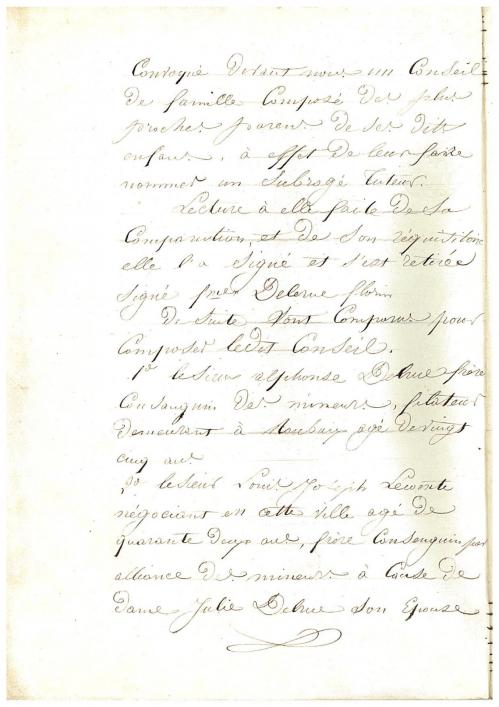 Convoqué devant nous un Conseil
de famille Composé des plus
proches parens de ses dits
enfans, à effet de leur faire
nommer un Subrogé tuteur.
Lecture à elle faite de sa
Comparution, et de son réquisitoire
elle l'a signé et s'est retirée
signé fmes Delerue florin
De suite Sont Comparus pour
Composer ledit Conseil.
1º le sieur alphonse Delerue frère
Consanguin des mineurs, filateur
demeurant à Roubaix agé de vingt
cinq ans
2º le sieur Louis Joseph Lecomte
négociant en cette ville agé de
quarante deux ans, frère Consanguin par
alliance des mineurs à Cause de
dame Julie Delerue Son Epouse